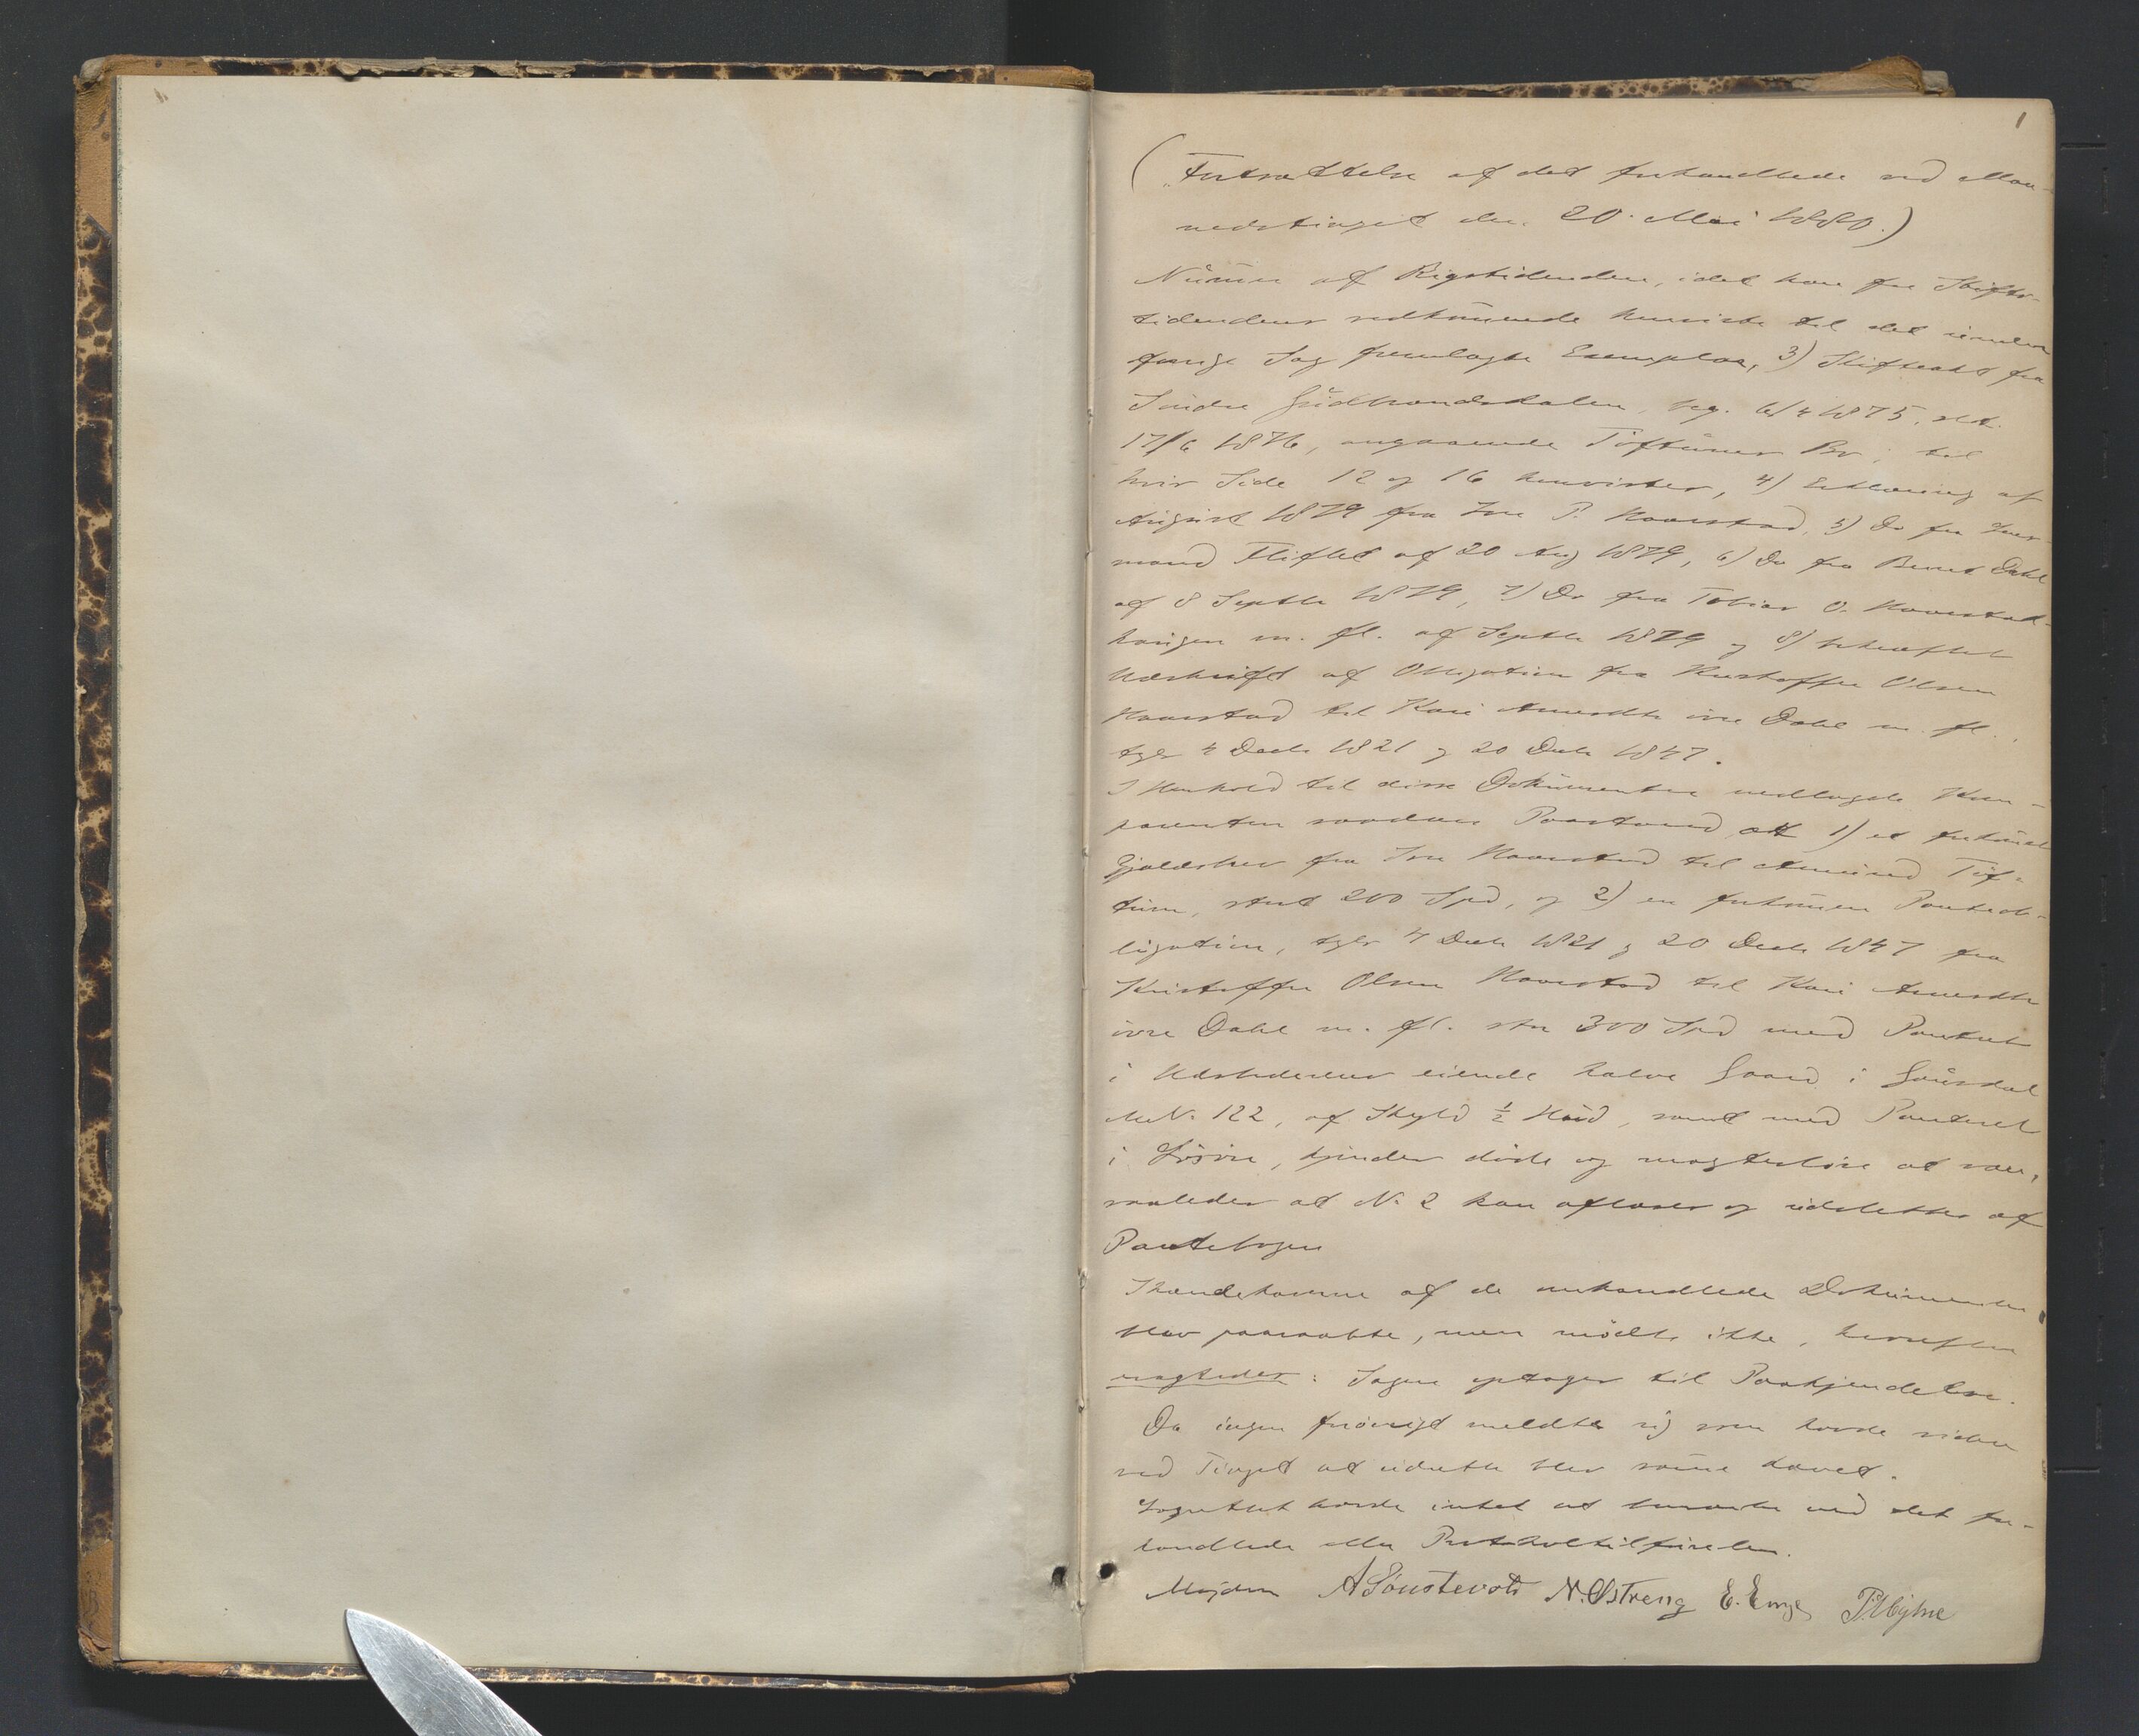 1
(Fortsættelse af det forhandlede ved Maa-
nedstinget den 20. Mai 1880.)
Numer af Rigstidenden, idet han for Stifts-
tidendens vedkommende henviste til det under
forrige Sag fremlagte Exemplar, 3) Skifteakt fra
Søndre Gudbrandsdalen, beg. 6/4 1875, slt.
17/6 1876, angaaende Toftumes Bo, til
hvis Side 12 og 16 henvistes, 4) Erklæring af
August 1879 fra Iver P. Haverstad, 5) Do fra
mand Fliflet af 20 Aug 1879, 6) Do fra Bernt Dahl
af 8 Septbr 1879, 7) Do fra Tobias O. Haverstad-
haugen m. fl. af Septbr 1879 og 8) bekræftet
Udskrift af Obligation fra Kristoffer Olsen
Haverstad til Kari Amundsdtr øvre Dahl m. fl.,
tgl. 4 Decbr 1821 og 20 Decbr 1847.
I Henhold til disse Dokumenter nedlagde Kom-
parenten saadan Paastand, at 1) et forkommet
Gjældsbrev fra Iver Haverstad til Amund Tof-
tum, stort 200 Spd, og 2) en forkommen Panteob-
ligation, tgl. 4 Decbr 1821 og 20 Decbr 1847 fra
Kristoffer Olsen Haverstad til Kari Amundsdtr
øvre Dahl m. fl. stor 300 Spd med Panteret
i Udstederens eiende halve Gaard i Gausdal
M.N. 122, af Skyld ½ Hud, samt med Panteret
i Løsøre, kjendes døde og magtesløse at være,
saaledes at No 2 kan aflæses og udslettes af
Pantebogen
Ihændehaverne af de omhandlede Dokumenter
blev paaraabte, men mødte ikke, hvorefter
eragtedes: Sagen optages til Paakjendelse.
Da ingen forøvrigt meldte sig som havde videre
ved Tinget at udrette blev samme hævet.
Lagrettet havde intet at bemærke ved det for-
handlede eller Protokoltilførelsen.
A Sønstevold N. Østreng E. Enge P. Myhre